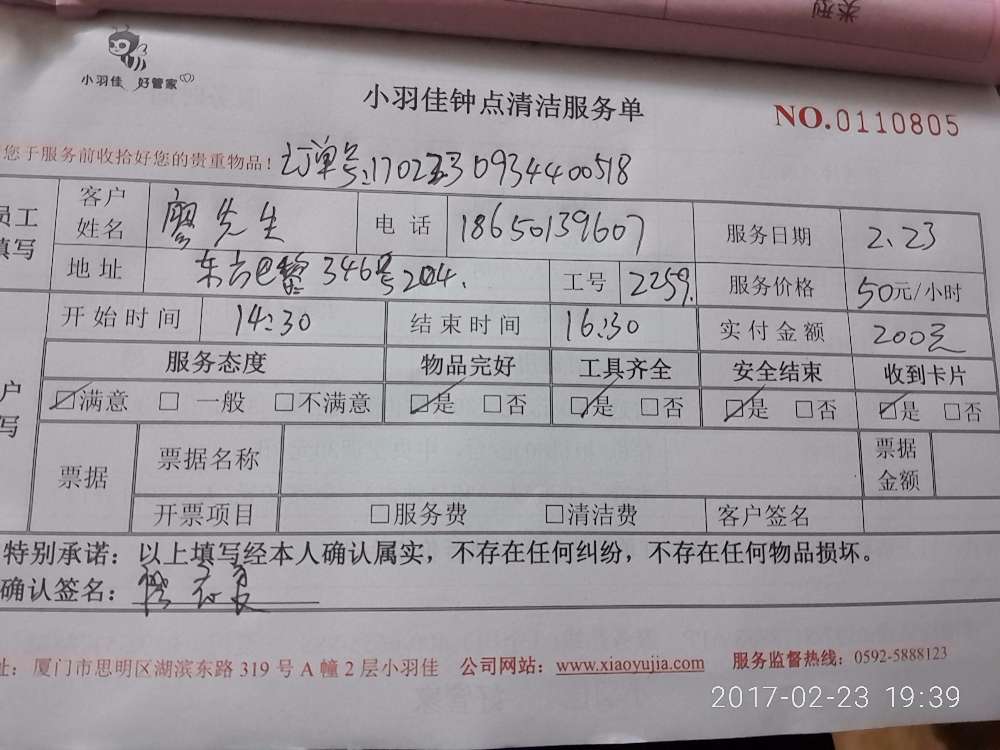 类型
小羽佳 好管家
小羽佳钟点清洁服务单
NO.0110805
您于服务前收拾好您的贵重物品！订单号:17022309344400518
员工填写 客户姓名 廖先生 电话 18650139607 服务日期 2.23
地址 346号204. 工号 2259. 服务价格 50元/小时
开始时间 14:30 结束时间 16:30 实付金额 200元
服务态度 物品完好 工具齐全 安全结束 收到卡片
户写 ☑满意 □ 一般 □不满意 ☑是 □否 ☑是 □否 ☑是 □否 ☑是 □否
票据 票据名称 票据金额
开票项目 □服务费 □清洁费 客户签名
特别承诺：以上填写经本人确认属实，不存在任何纠纷，不存在任何物品损坏。
确认签名：
址：厦门市思明区湖滨东路 319 号 A 幢 2 层小羽佳 公司网站：www.xiaoyujia.com 服务监督热线：0592-5888123
2017-02-23 19:39